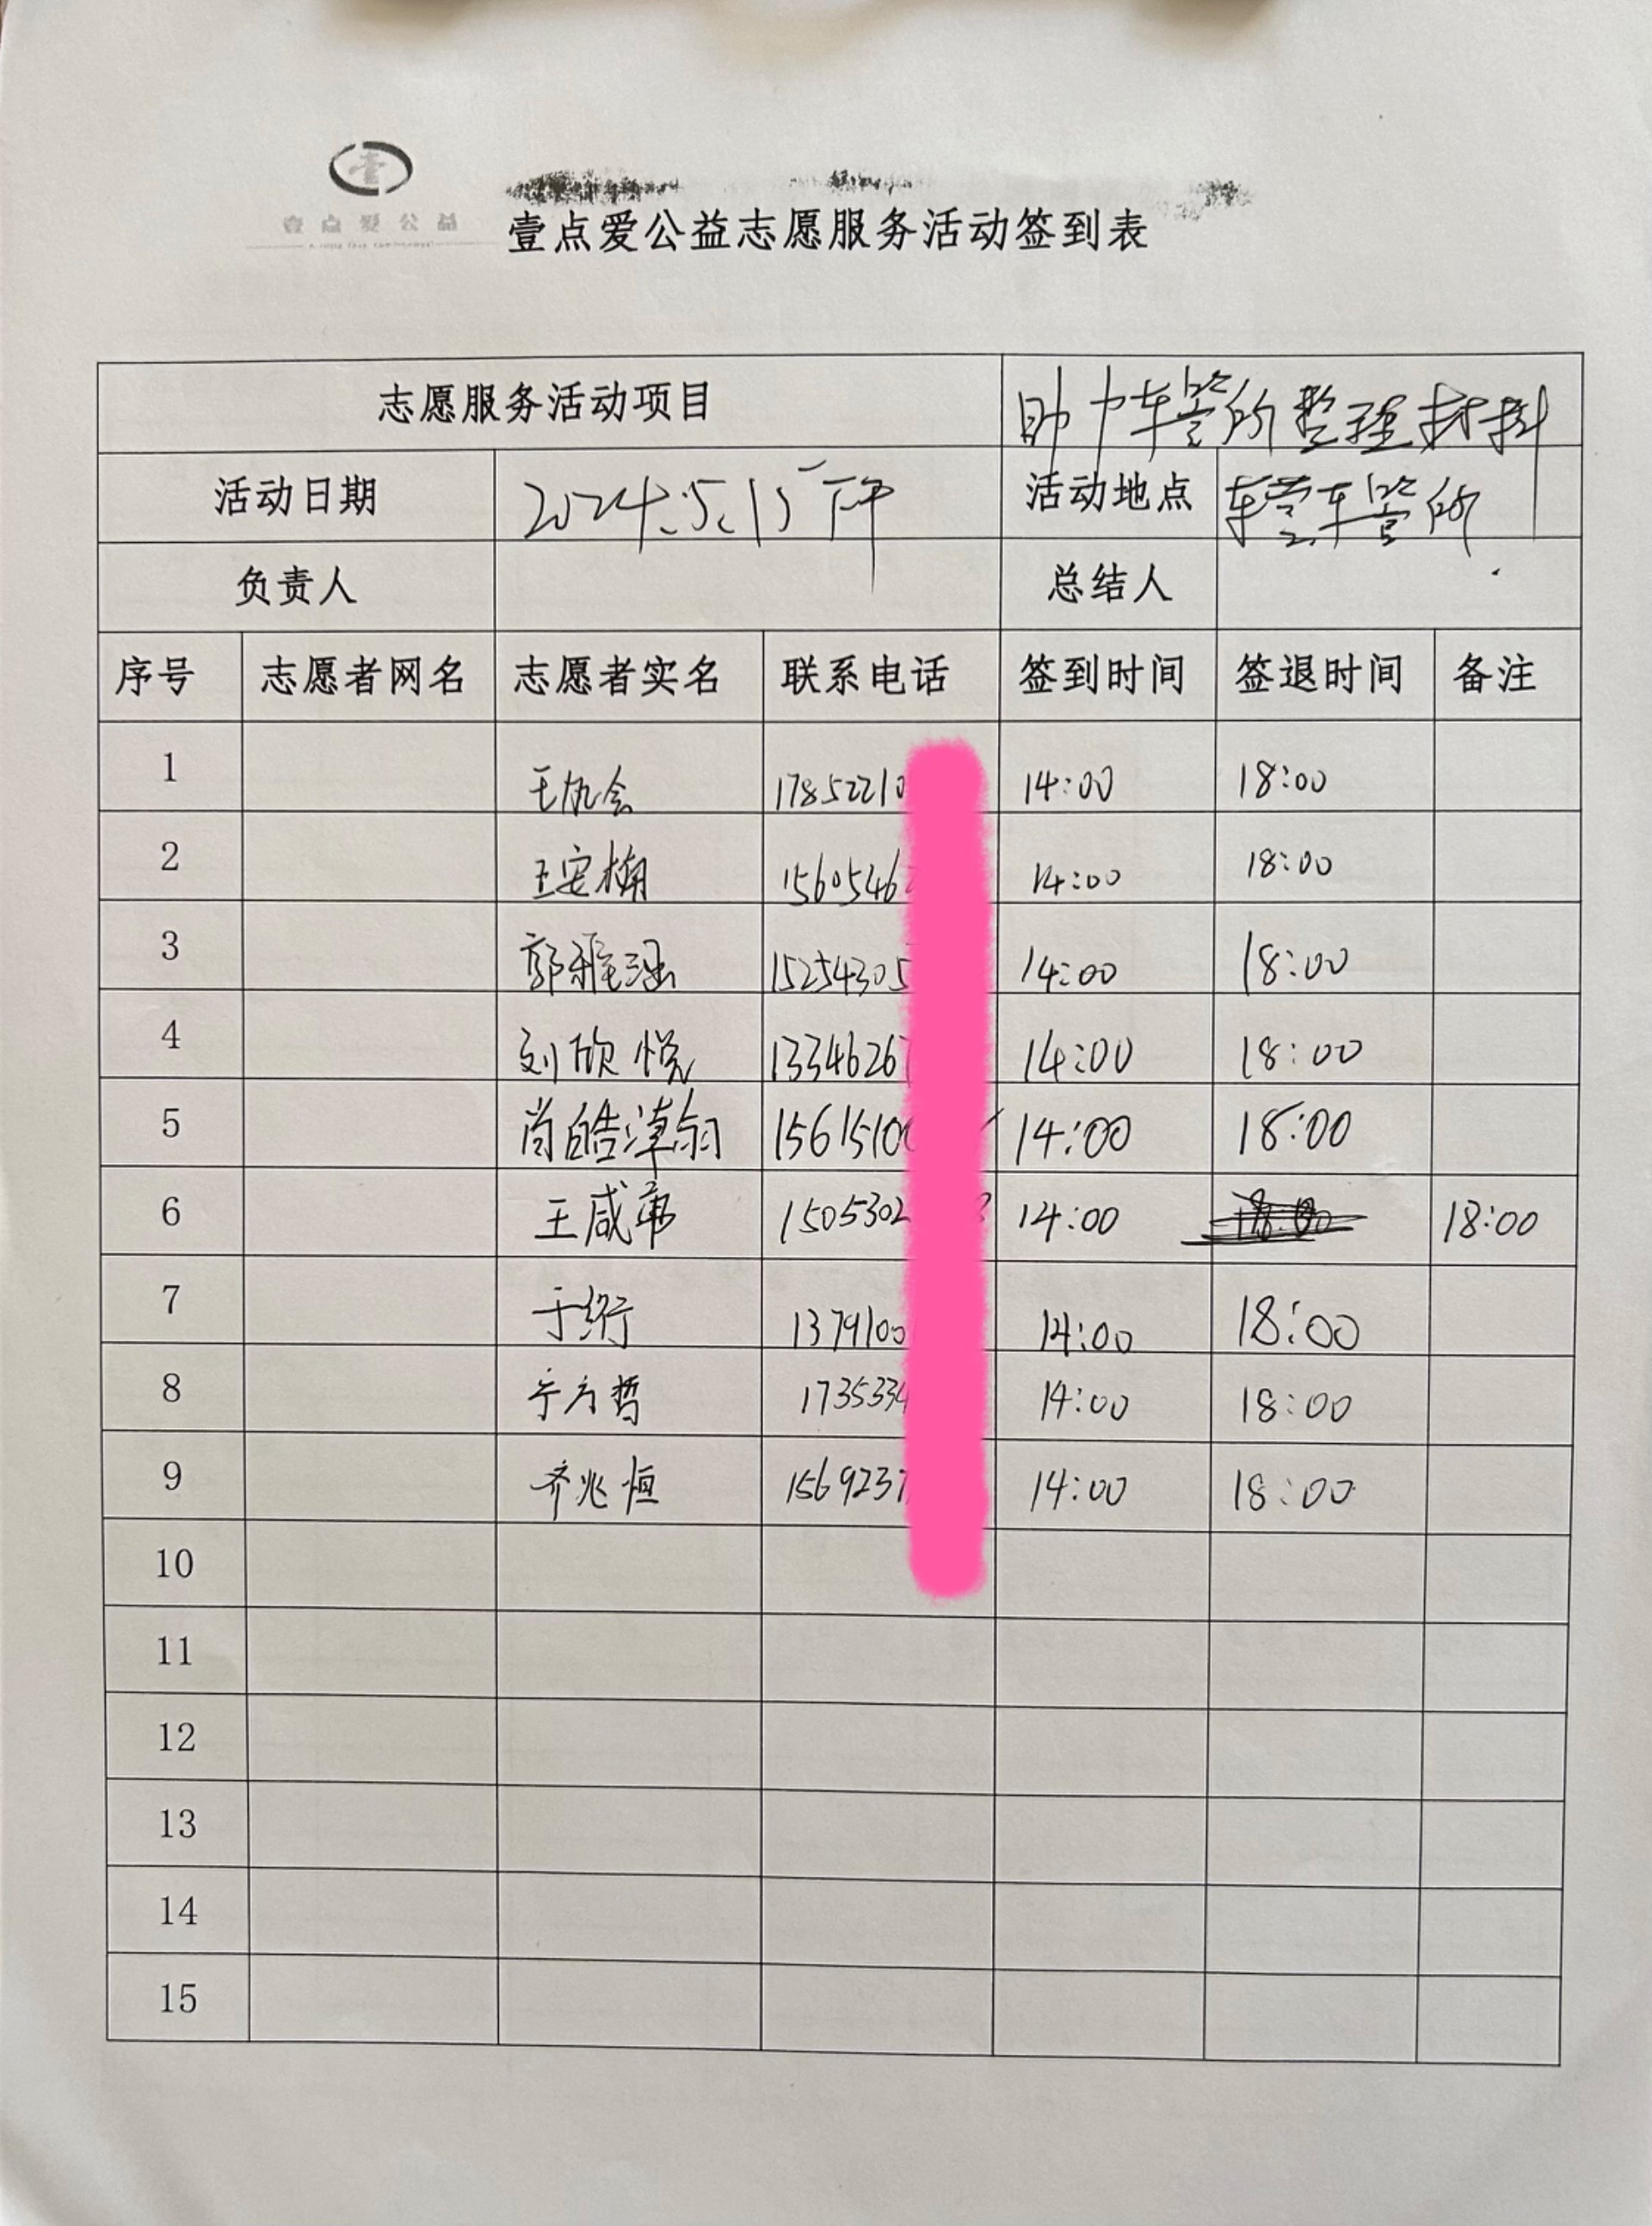 壹点爱公益
壹点爱公益志愿服务活动签到表
志愿服务活动项目 助力车管所整理材料
活动日期 2024.5.15 下午 活动地点 东营车管所
负责人 总结人
序号 志愿者网名 志愿者实名 联系电话 签到时间 签退时间 备注
1 1785221 14:00 18:00
2 王安楠 1560546 14:00 18:00
3 郭雅涵 15254305 14:00 18:00
4 刘欣悦 1334626 14:00 18:00
5 肖皓漳翎 1561510 14:00 18:00
6 王咸 1505302 14:00 18:00
7 于绗 137910 14:00 18:00
8 于方哲 173533 14:00 18:00
9 齐兆恒 1569237 14:00 18:00
10
11
12
13
14
15